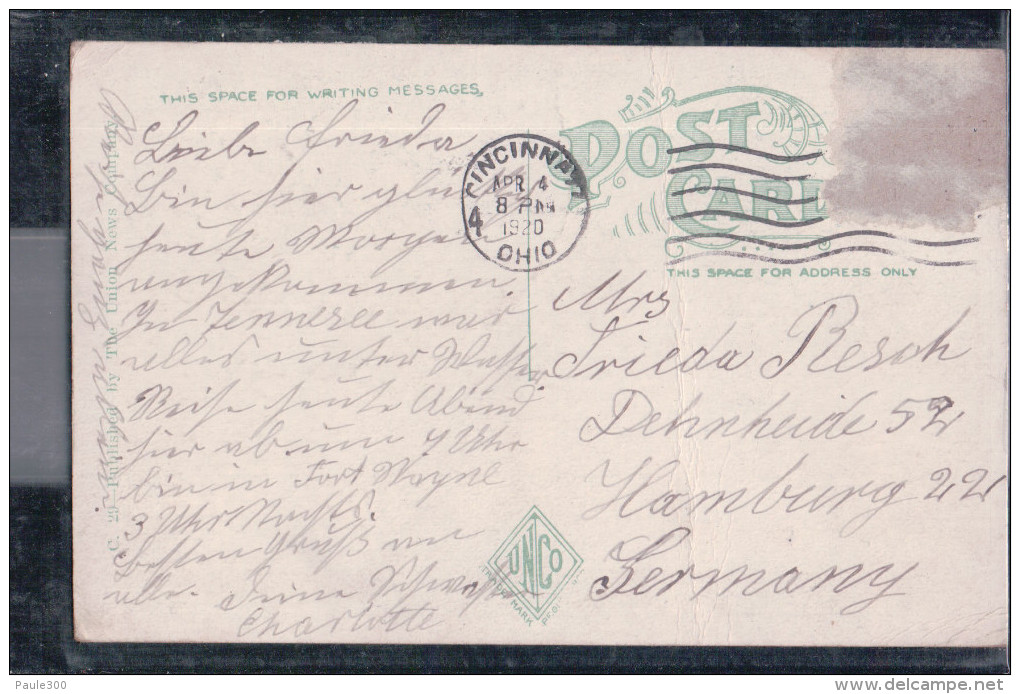 THIS SPACE FOR WRITING MESSAGES.
POST CARD
THIS SPACE FOR ADDRESS ONLY
CINCINNATI
APR 4
8 PM
1920
OHIO
4
Liebe Frieda
Bin hier
heute Morgen
angekommen.
In Tennesee war
alles unter Wasser
Reise heute Abend
hier ab um 7 Uhr
bin in Fort Wayne
3 Uhr Nachts.
besten Gruß an
alle. Deine Schwester
Charlotte
Mrs
Frieda Resch
Dehnheide 52
Hamburg 22
Germany
UNCO
TRADE MARK
C. 29—Published by The Union News Company
Paule300
delcampe.net